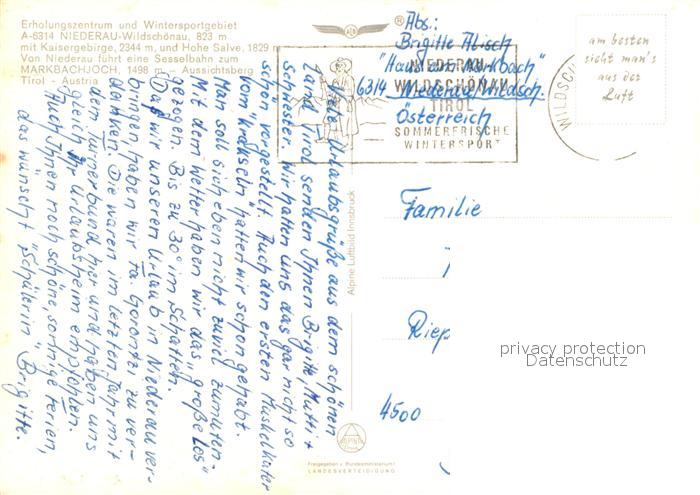 Erholungszentrum und Wintersportgebiet
A-6314 NIEDERAU-Wildschönau, 823 m
mit Kaisergebirge, 2344 m, und Hohe Salve, 1829 m
Von Niederau führt eine Sesselbahn zum
MARKBACHJOCH, 1498 m - Aussichtsberg
Tirol - Austria
®
Abs:
Brigitte Alisch
"Haus am Markbach"
6314 Niederau/Wildsch.
Österreich
NIEDERAU
WILDSCHÖNAU
TIROL
SOMMERFRISCHE
WINTERSPORT
WILDSCH
am besten
sieht man's
aus der
Luft
Viele Urlaubsgrüße aus dem schönen
Land Tirol senden Ihnen Brigitte, Mutti +
Schwester. Wir hatten uns das gar nicht so
schön vorgestellt. Auch den ersten Muskelkater
vom "kraxseln" hatten wir schon gehabt.
Man soll sich eben nicht zuviel zumuten.
Mit dem Wetter haben wir das "große Los"
gezogen. Bis zu 30° im Schatten.
Daß wir unseren Urlaub in Niederau ver-
bringen haben wir Fa. Gorontzi zu ver-
danken. Die waren im letzten Jahr mit
dem Turnerbund hier und haben uns
gleich Ihr Urlaubsheim empfohlen.
Auch Ihnen noch schöne, sonnige Ferien,
das wünscht "Schülerin" Brigitte.
Alpine Luftbild Innsbruck
Familie
Riep
4500
privacy protection
Datenschutz
ALPINE
Freigegeben v. Bundesministerium f.
LANDESVERTEIDIGUNG